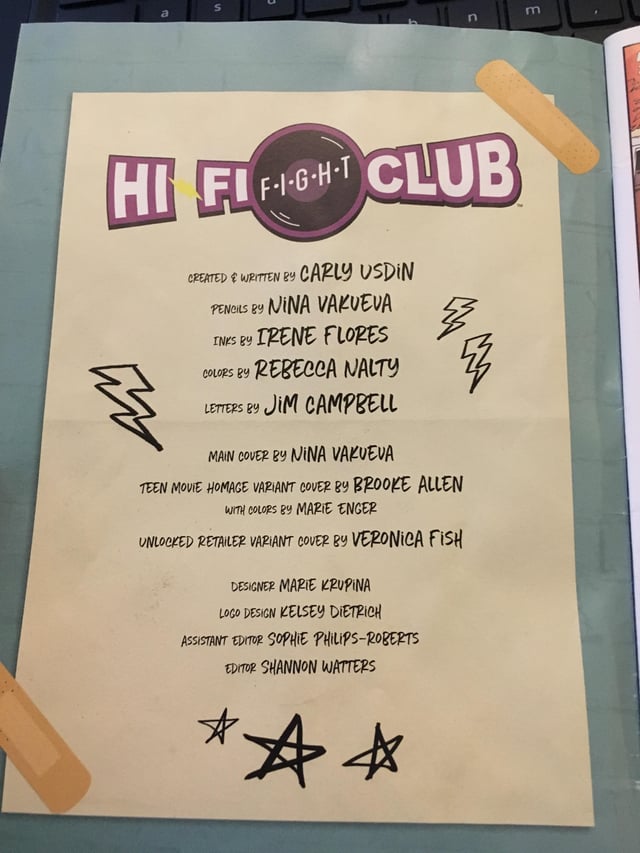 a s n m ,
HI-FI F·I·G·H·T CLUB™
CREATED & WRITTEN BY CARLY USDIN
PENCILS BY NINA VAKUEVA
INKS BY IRENE FLORES
COLORS BY REBECCA NALTY
LETTERS BY JIM CAMPBELL
MAIN COVER BY NINA VAKUEVA
TEEN MOVIE HOMAGE VARIANT COVER BY BROOKE ALLEN
WITH COLORS BY MARIE ENGER
UNLOCKED RETAILER VARIANT COVER BY VERONICA FISH
DESIGNER MARIE KRUPINA
LOGO DESIGN KELSEY DIETRICH
ASSISTANT EDITOR SOPHIE PHILIPS-ROBERTS
EDITOR SHANNON WATTERS